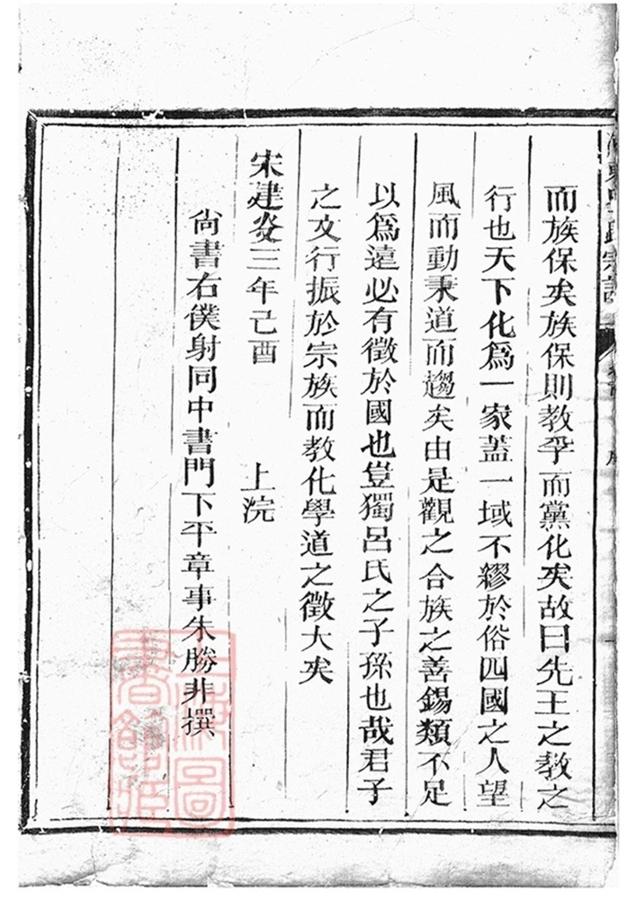 而族保矣族保則教孚而黨化矣故曰先王之教之
行也天下化爲一家蓋一域不繆於俗四國之人望
風而動秉道而趨矣由是觀之合族之善錫類不足
以爲遠必有徵於國也豈獨呂氏之子孫也哉君子
之文行振於宗族而教化學道之徵大矣
宋建炎三年己酉 上浣
尙書右僕射同中書門下平章事朱勝非撰